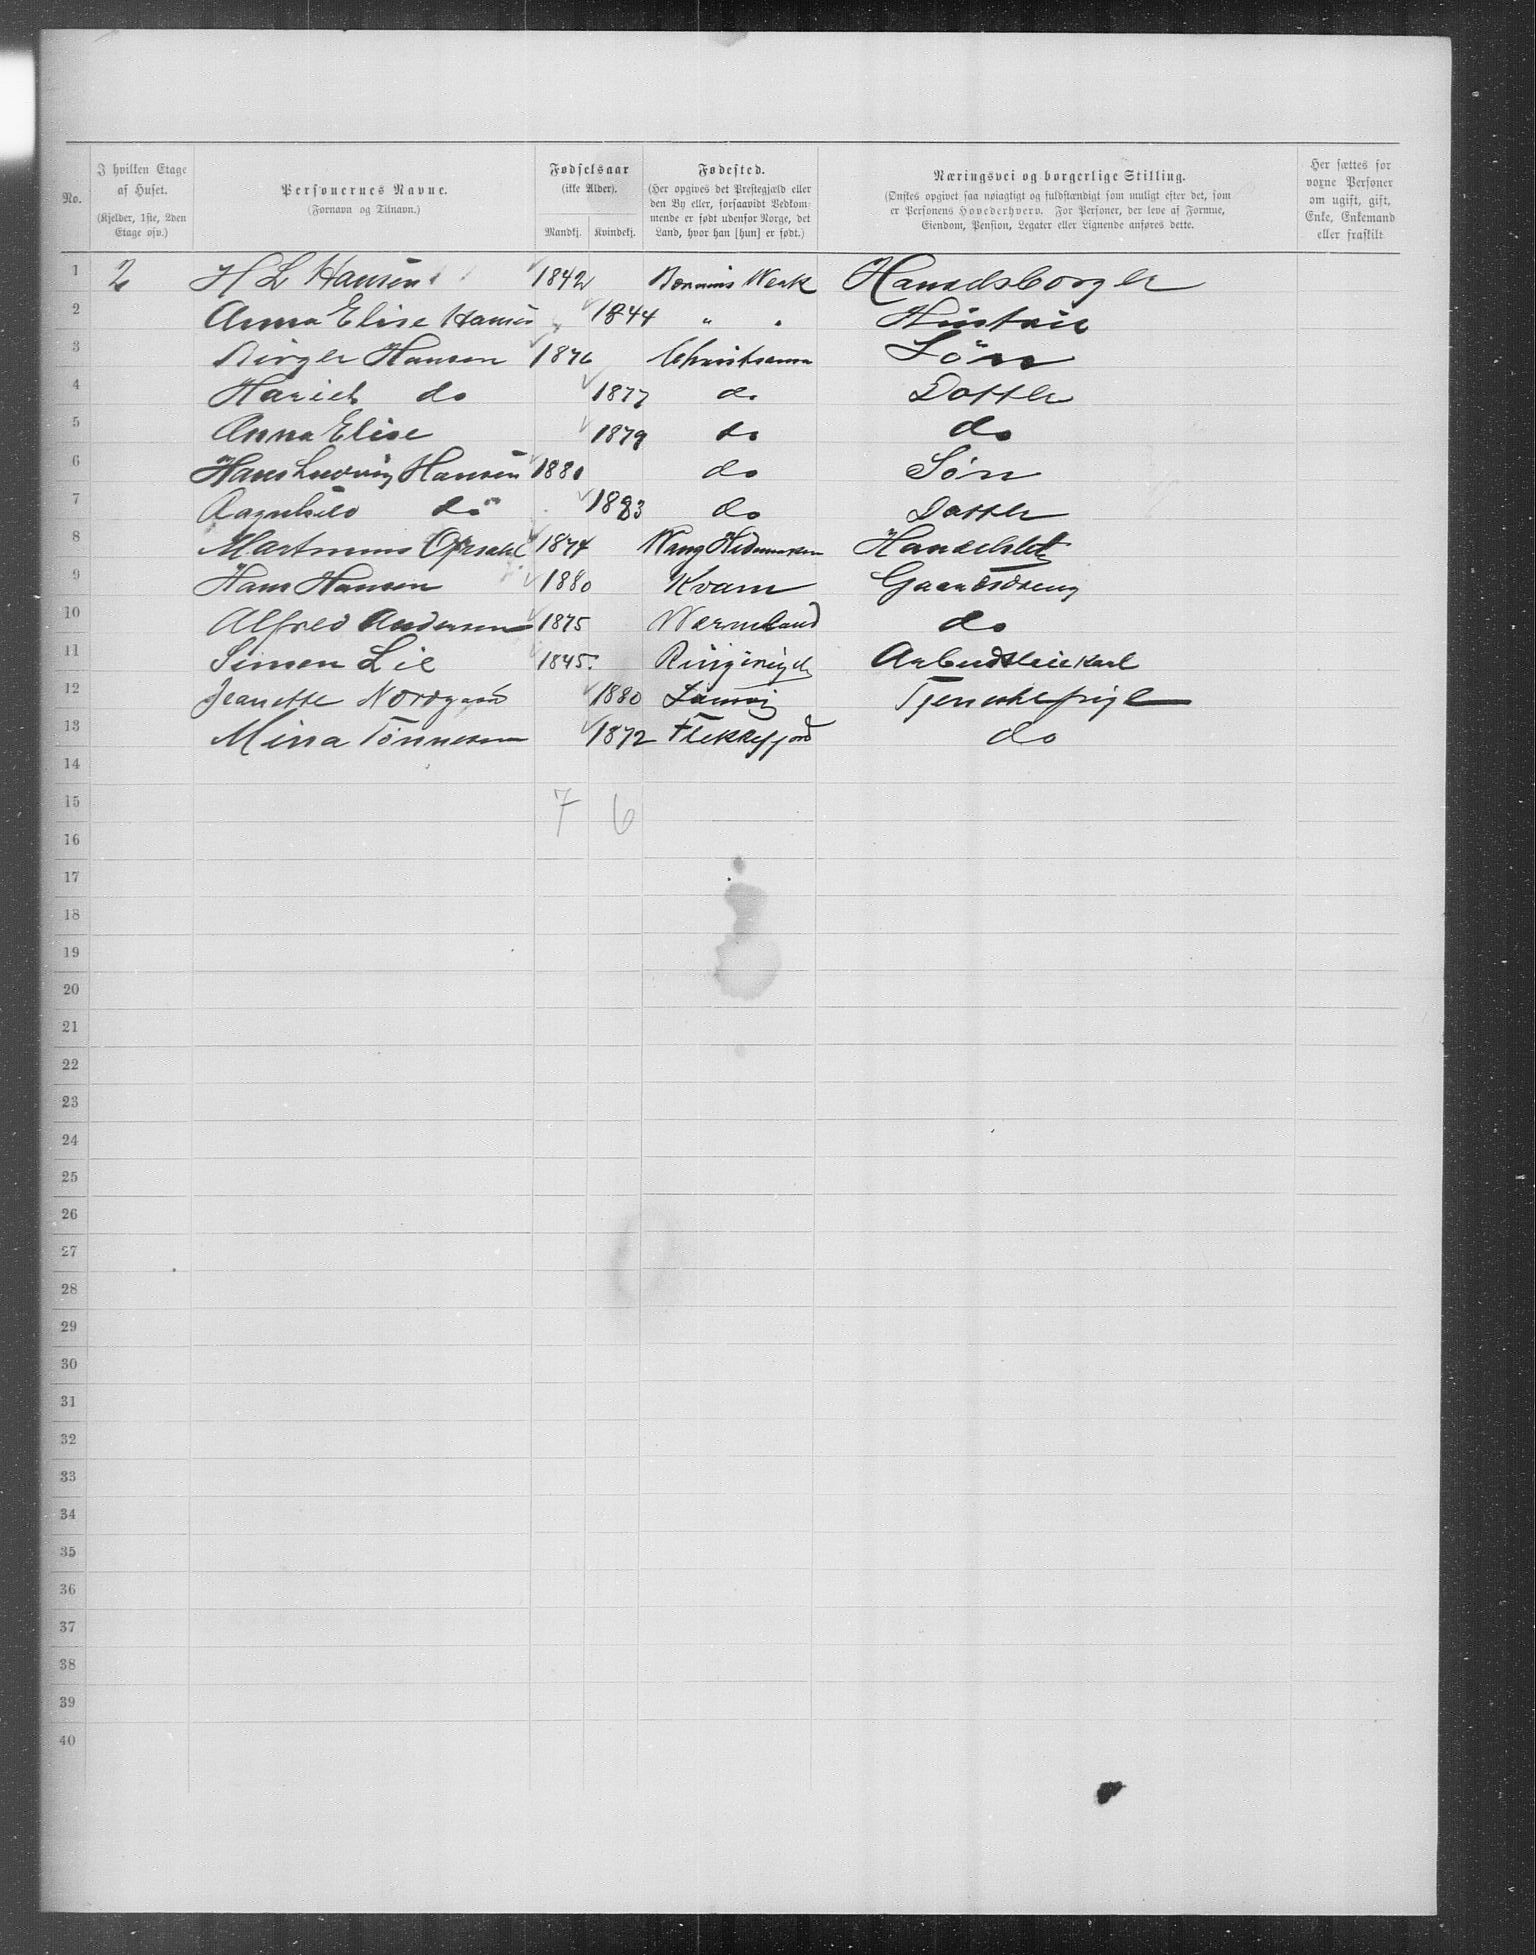 No.
I hvilken Etage af Huset.
(Kjelder, 1ste, 2den Etage osv.)
Personernes Navne.
(Fornavn og Tilnavn.)
Fødselsaar
(ikke Alder).
Mandkj. Kvindekj.
Fødested.
(Her opgives det Prestegjæld eller
den By eller, forsaavidt Vedkom-
mende er født udenfor Norge, det
Land, hvor han [hun] er født.)
Næringsvei og borgerlige Stilling.
(Ønskes opgivet saa nøiagtigt og fuldstændigt som muligt efter det, som
er Personens Hovederhverv. For Personer, der leve af Formue,
Eiendom, Pension, Legater eller Lignende anføres dette.
Her sættes for
voxne Personer
om ugift, gift,
Enke, Enkemand
eller fraskilt
1 2 H L Hansen 1842 Bærums Værk Handelsborger
2 Anna Elise Hansen 1844 " " Hustru
3 Birger Hansen 1876 Christiania Søn
4 Hariet do 1877 do Datter
5 Anna Elise 1879 do do
6 Hans Ludvig Hansen 1881 do Søn
7 Ragnhild do 1883 do Datter
8 Martinius 1874 Vang Hedemarken
9 Hans Hansen 1880 Kvam Gaardsdreng
10 Alfred Andersen 1875 Wermland do
11 Simon Lie 1845 Ringerige
12 Jeanette Nordgaard 1880 Tjenestepige
13 Mina Tønnesen 1872 Flekkefjord do
14
15 7 6
16
17
18
19
20
21
22
23
24
25
26
27
28
29
30
31
32
33
34
35
36
37
38
39
40